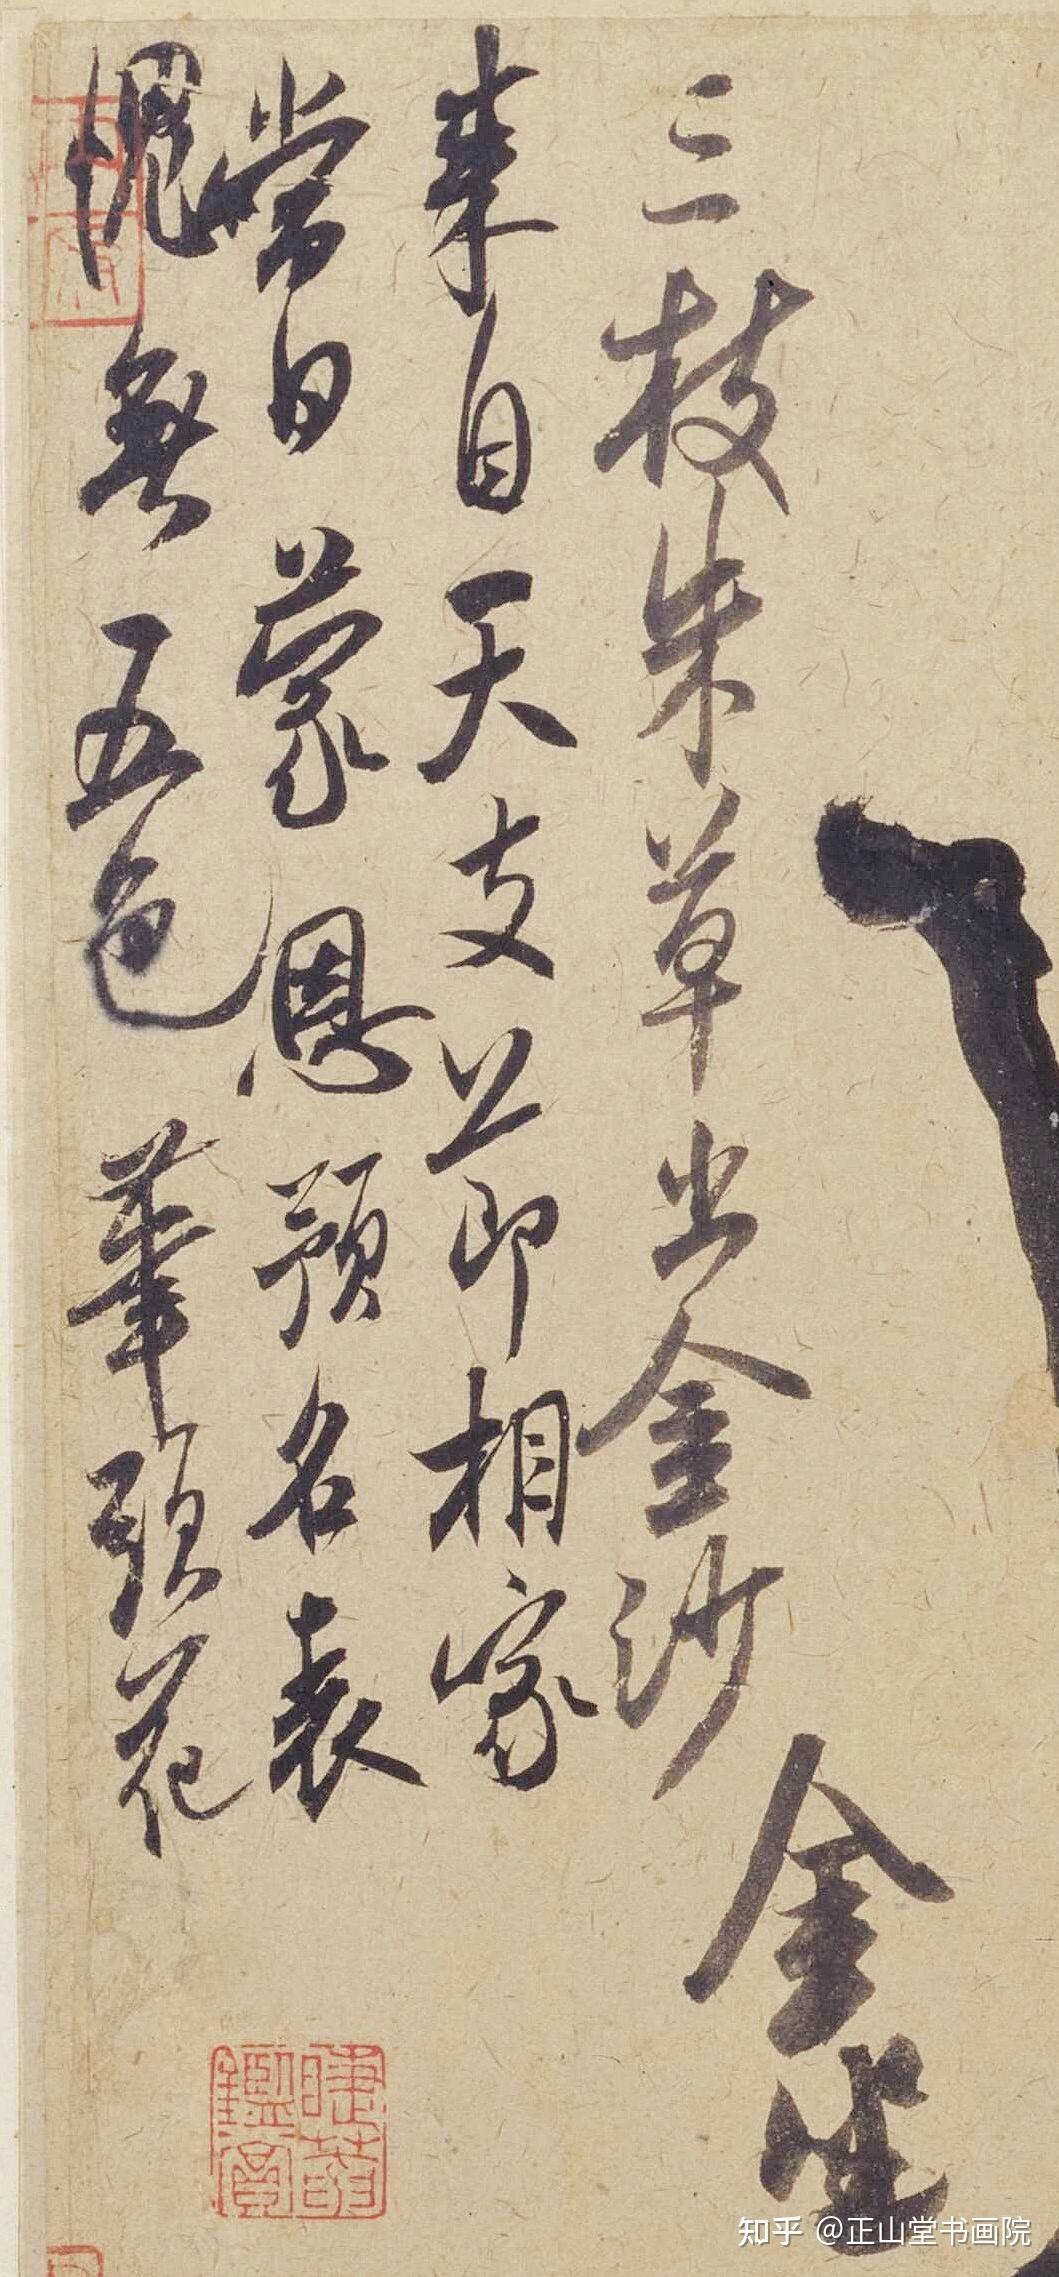 金坐
三枝朱草出金沙
来自天支節相家
當日蒙恩預名表
愧無五色筆頭花
鑑賞
知乎 @正山堂书画院